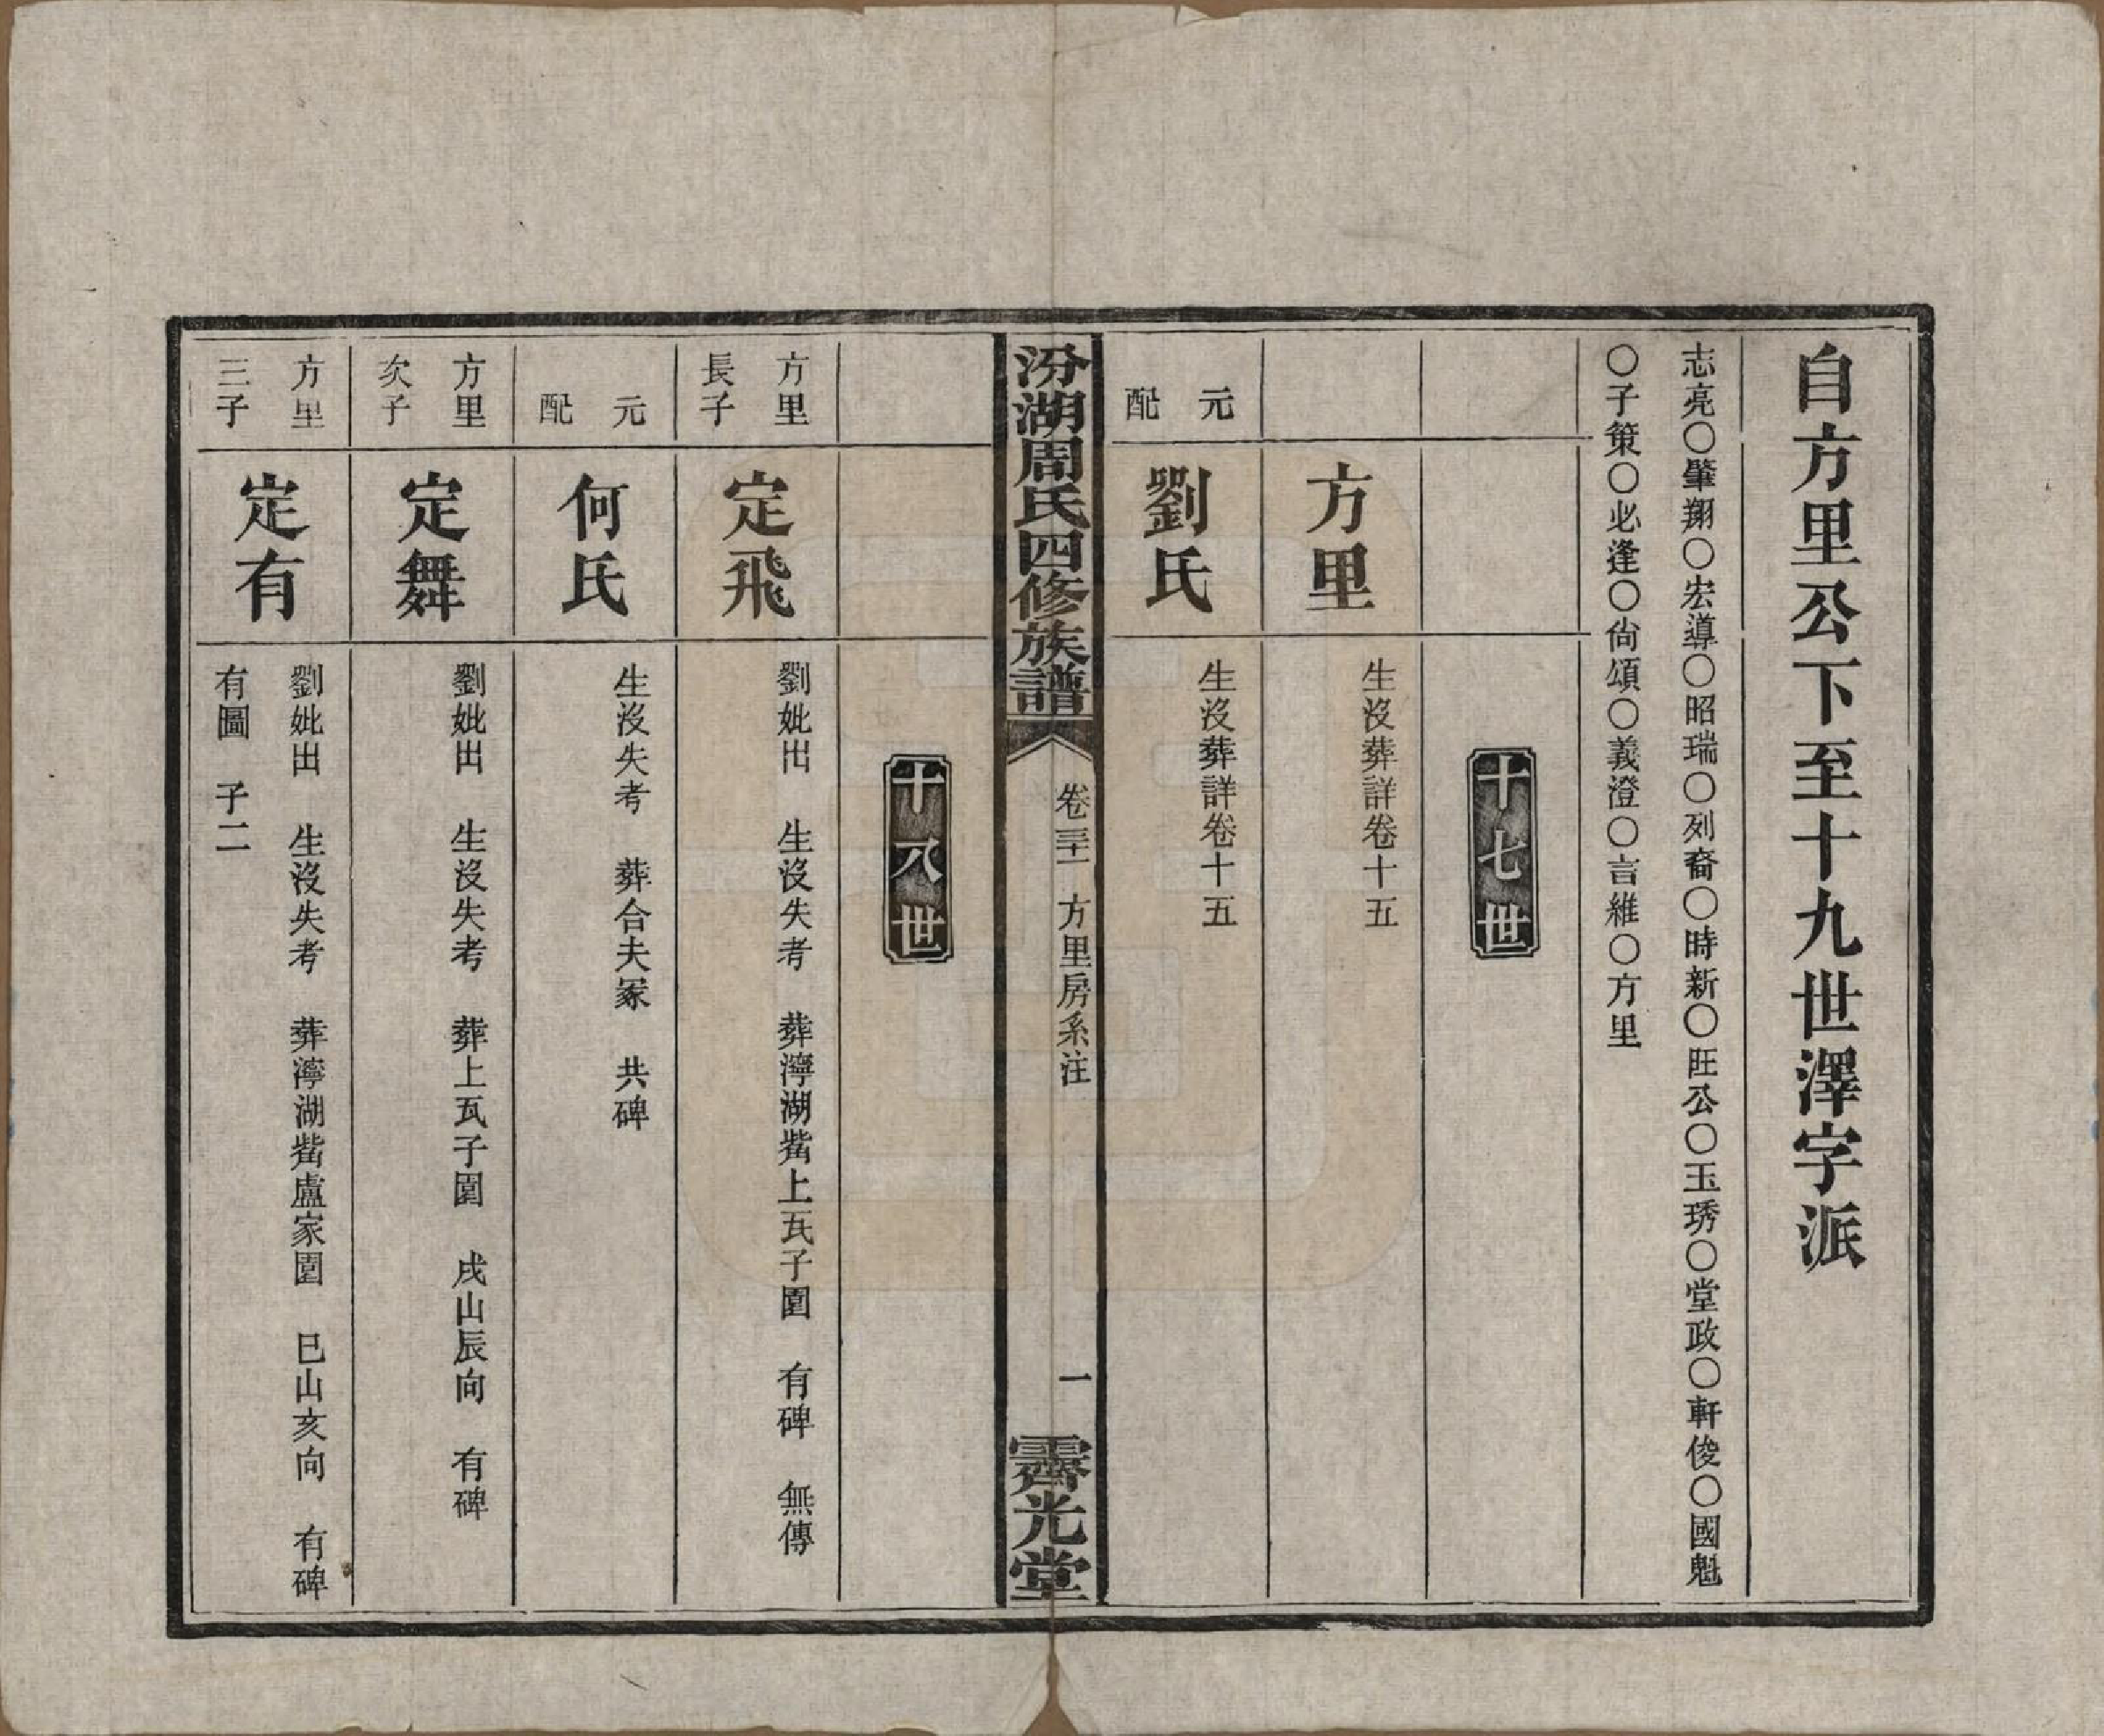 自方里公下至十九世澤字派
志亮〇肇翔〇宏導〇昭瑞〇列裔〇時新〇旺公〇玉琇〇堂政〇軒俊〇國魁
〇子策〇必逢〇尙頌〇義澄〇言維〇方里
十七世
方里
生沒葬詳卷十五
元配
劉氏
生沒葬詳卷十五
汾湖周氏四修族譜
卷三十一
方里房系注
一
霽光堂
十八世
方里
長子
定飛
劉妣出 生沒失考 葬濘湖觜上瓦子園 有碑 無傳
元配
何氏
生沒失考 葬合夫冢 共碑
方里
次子
定舞
劉妣出 生沒失考 葬上瓦子園 戌山辰向 有碑
方里
三子
定有
劉妣出 生沒失考 葬濘湖觜盧家園 巳山亥向 有碑
有圖 子二